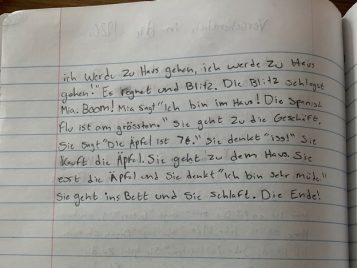 ich werde zu Haus gehen, ich werde zu Haus
gehen!" Es regnet und Blitz. Die Blitz schlagst
Mia. BOOM! Mia sagt "Ich bin im Haus! Die Spanish
Flu ist am grösstens" Sie geht zu die Geschäft.
Sie sagt "Die Äpfel ist 7¢." Sie denkt "iss!" Sie
kauft die Äpfel. Sie geht zu dem Haus. Sie
esst die Äpfel und Sie denkt "Ich bin sehr müde"
Sie geht ins Bett und Sie schlaft. Die Ende!